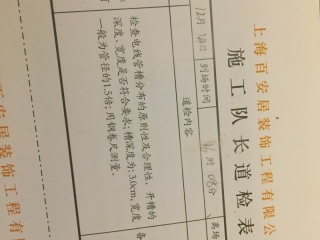 上海百安居装饰工程有限公
施工队长道检表
12月
日
到场时间
时
分
离场
道检内容
备
检查电线管槽分布的原则性及合理性、开槽的
深度、宽度是否符合要求;槽深度为:3.0cm,宽度
一般为管径的1.5倍;用钢卷尺测量。
安居装饰工程有限